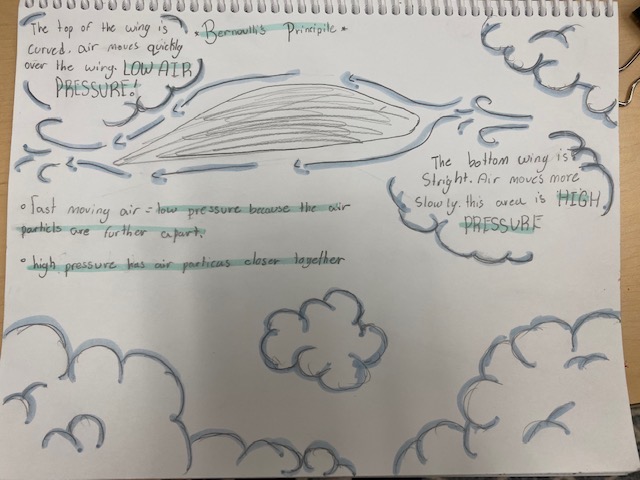 * Bernoulli's Principile *
The top of the wing is
curved. air moves quickly
over the wing. LOW AIR
PRESSURE!
The bottom wing is
Stright. Air moves more
slowly. this area is HIGH
PRESSURE
• fast moving air = low pressure because the air
particls are further apart.
• high pressure has air particas closer together